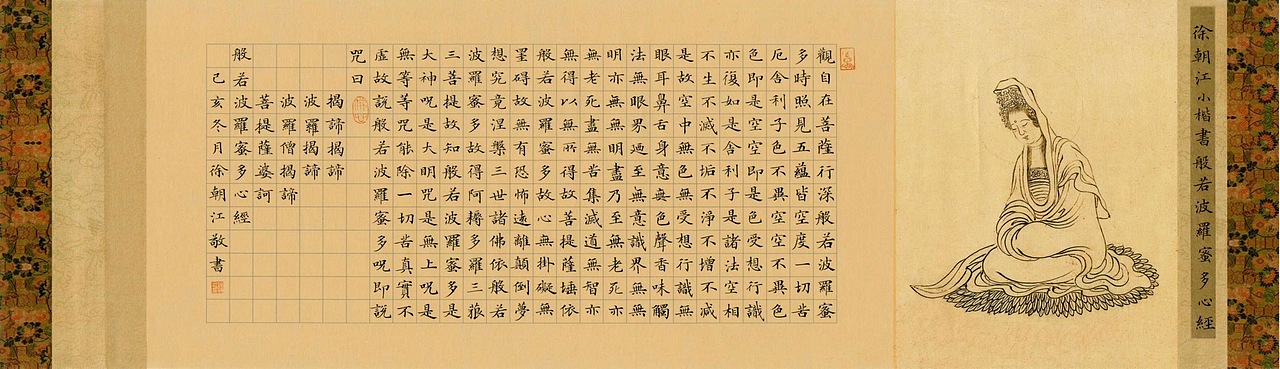 徐朝江小楷書般若波羅蜜多心經
觀自在菩薩行深般若波羅蜜
多時照見五蘊皆空度一切苦
厄舍利子色不異空空不異色
色即是空空即是色受想行識
亦復如是舍利子是諸法空相
不生不滅不垢不淨不增不減
是故空中無色無受想行識無
眼耳鼻舌身意無色聲香味觸
法無眼界廼至無意識界無無
明亦無無明盡乃至無老死亦
無老死盡無苦集滅道無智亦
無得以無所得故菩提薩埵依
般若波羅蜜多故心無掛礙無
罣碍故無有恐怖遠離顛倒夢
想究竟涅槃三世諸佛依般若
波羅蜜多故得阿耨多羅三藐
三菩提故知般若波羅蜜多是
大神咒是大明咒是無上咒是
無等等咒能除一切苦真實不
虛故說般若波羅蜜多呪即說
咒曰
揭諦揭諦
波羅揭諦
波羅僧揭諦
菩提薩婆訶
般若波羅蜜多心經
己亥冬月徐朝江敬書